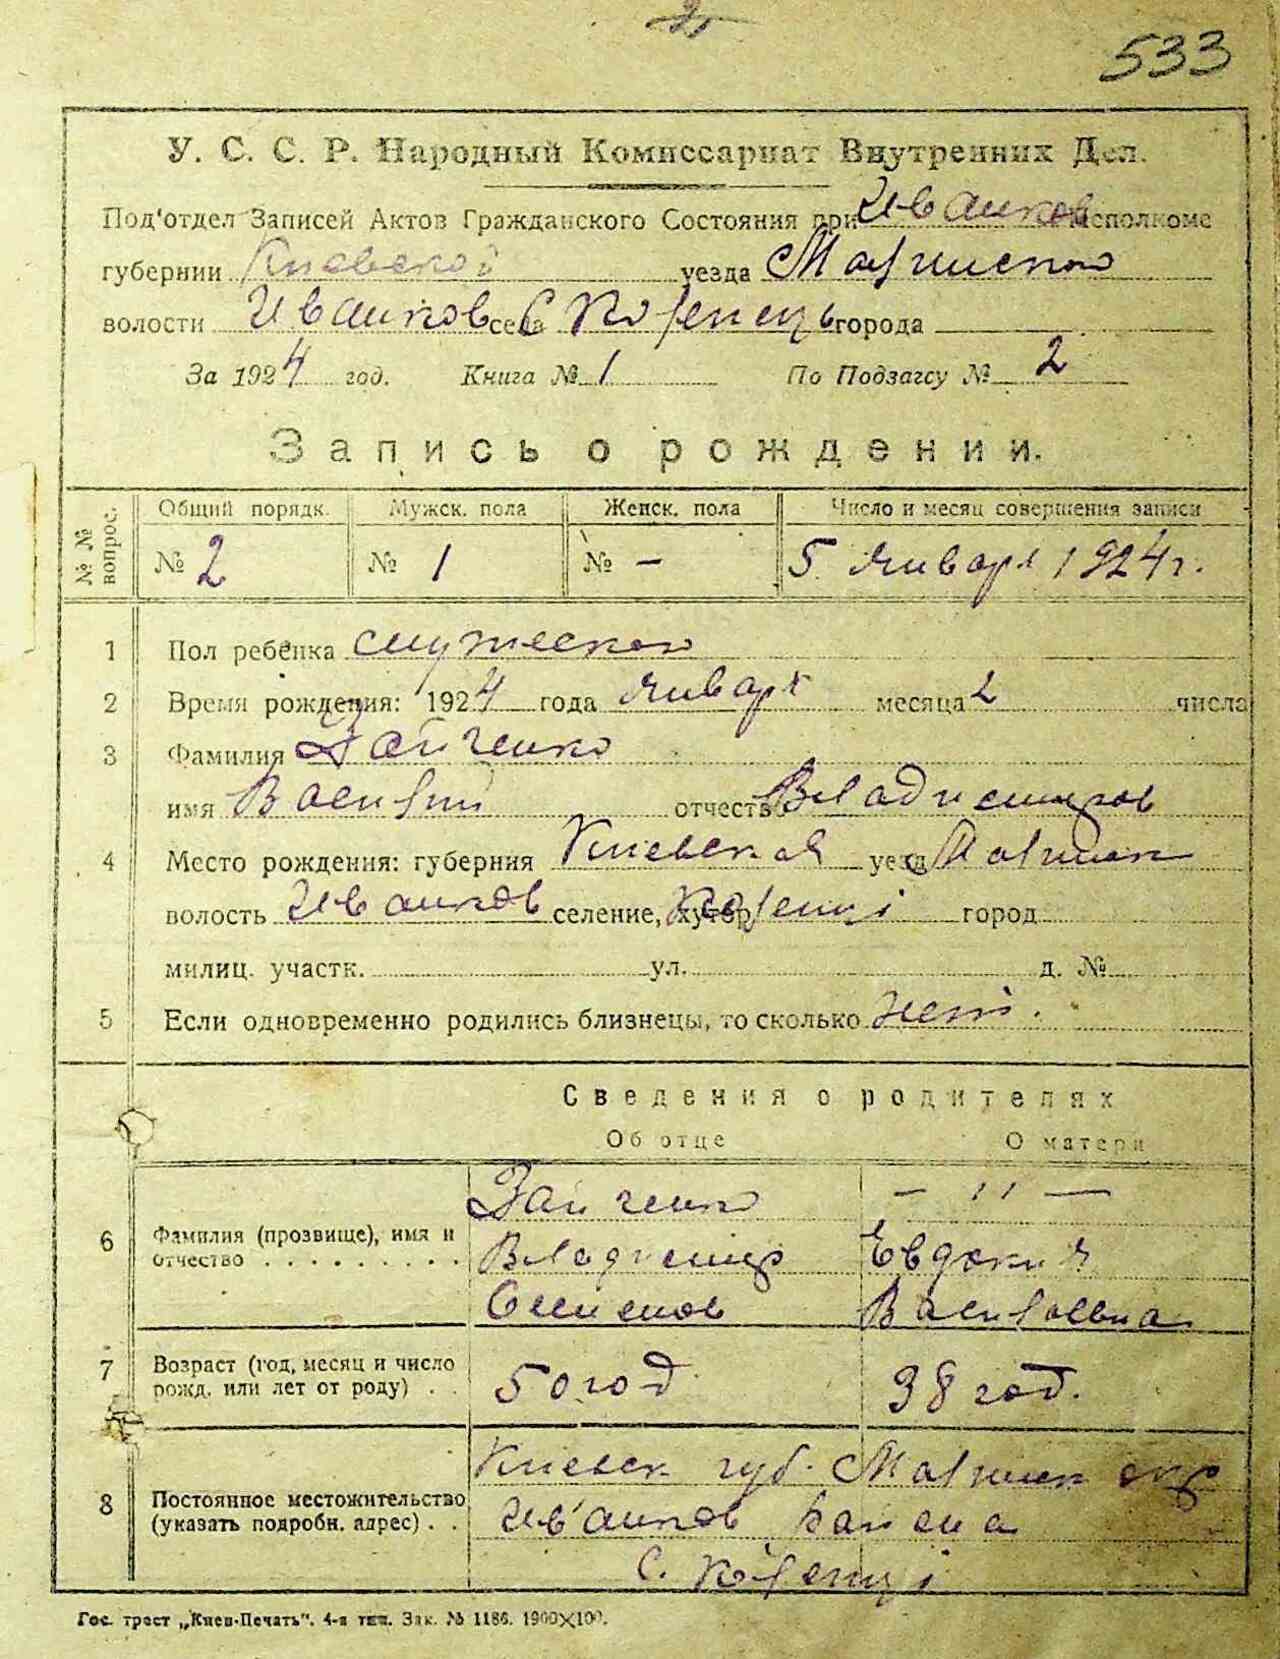 533
У. С. С. Р. Народный Комиссариат Внутренних Дел.
Под'отдел Записей Актов Гражданского Состояния при Иванков Исполкоме
губернии Киевской уезда Малинского
волости Иванков села С Коленець города
За 1924 год. Книга № 1 По Подзагсу № 2
Запись о рождении.
№ № вопрос. Общий порядк. Мужск. пола Женск. пола Число и месяц совершения записи
№ 2 № 1 № - 5 января 1924 г.
1 Пол ребенка мужеского
2 Время рождения: 1924 года января месяца 2 числа
3 Фамилия Зайченко
имя Василий отчество Владимиров
4 Место рождения: губерния Киевской уезд Малинск
волость Иванков селение, хутор Коленці город
милиц. участк. ул. д. №
5 Если одновременно родились близнецы, то сколько нет.
Сведения о родителях
Об отце О матери
6 Фамилия (прозвище), имя и отчество . . . . . . . . .
Зайченко - " -
Владимир Евдокия
Семенов Васильевна
7 Возраст (год, месяц и число рожд. или лет от роду) . .
50 год 38 год.
8 Постоянное местожительство (указать подробн. адрес) . .
Киевск губ. Малинск окр
Иванков района
с. Коленці
Гос. трест „Киев-Печать". 4-я тип. Зак. № 1186. 1900×100.